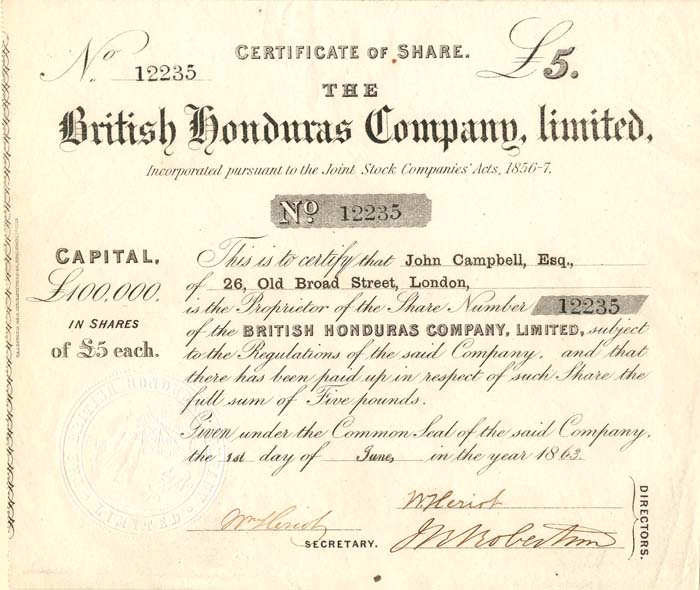 No. 12235
CERTIFICATE OF SHARE.
£5.
THE
British Honduras Company, limited,
Incorporated pursuant to the Joint Stock Companies' Acts, 1856-7.
No 12235
CAPITAL,
£100,000,
IN SHARES
of £5 each.
This is to certify that John Campbell, Esq.,
of 26, Old Broad Street, London,
is the Proprietor of the Share Number 12235
of the BRITISH HONDURAS COMPANY, LIMITED, subject
to the Regulations of the said Company, and that
there has been paid up in respect of such Share the
full sum of Five pounds.
Given under the Common Seal of the said Company,
the 1st day of June, in the year 1863.
THE BRITISH HONDURAS
LIMITED
Wm Heriot
SECRETARY.
W. Heriot
J M Robertson
DIRECTORS.